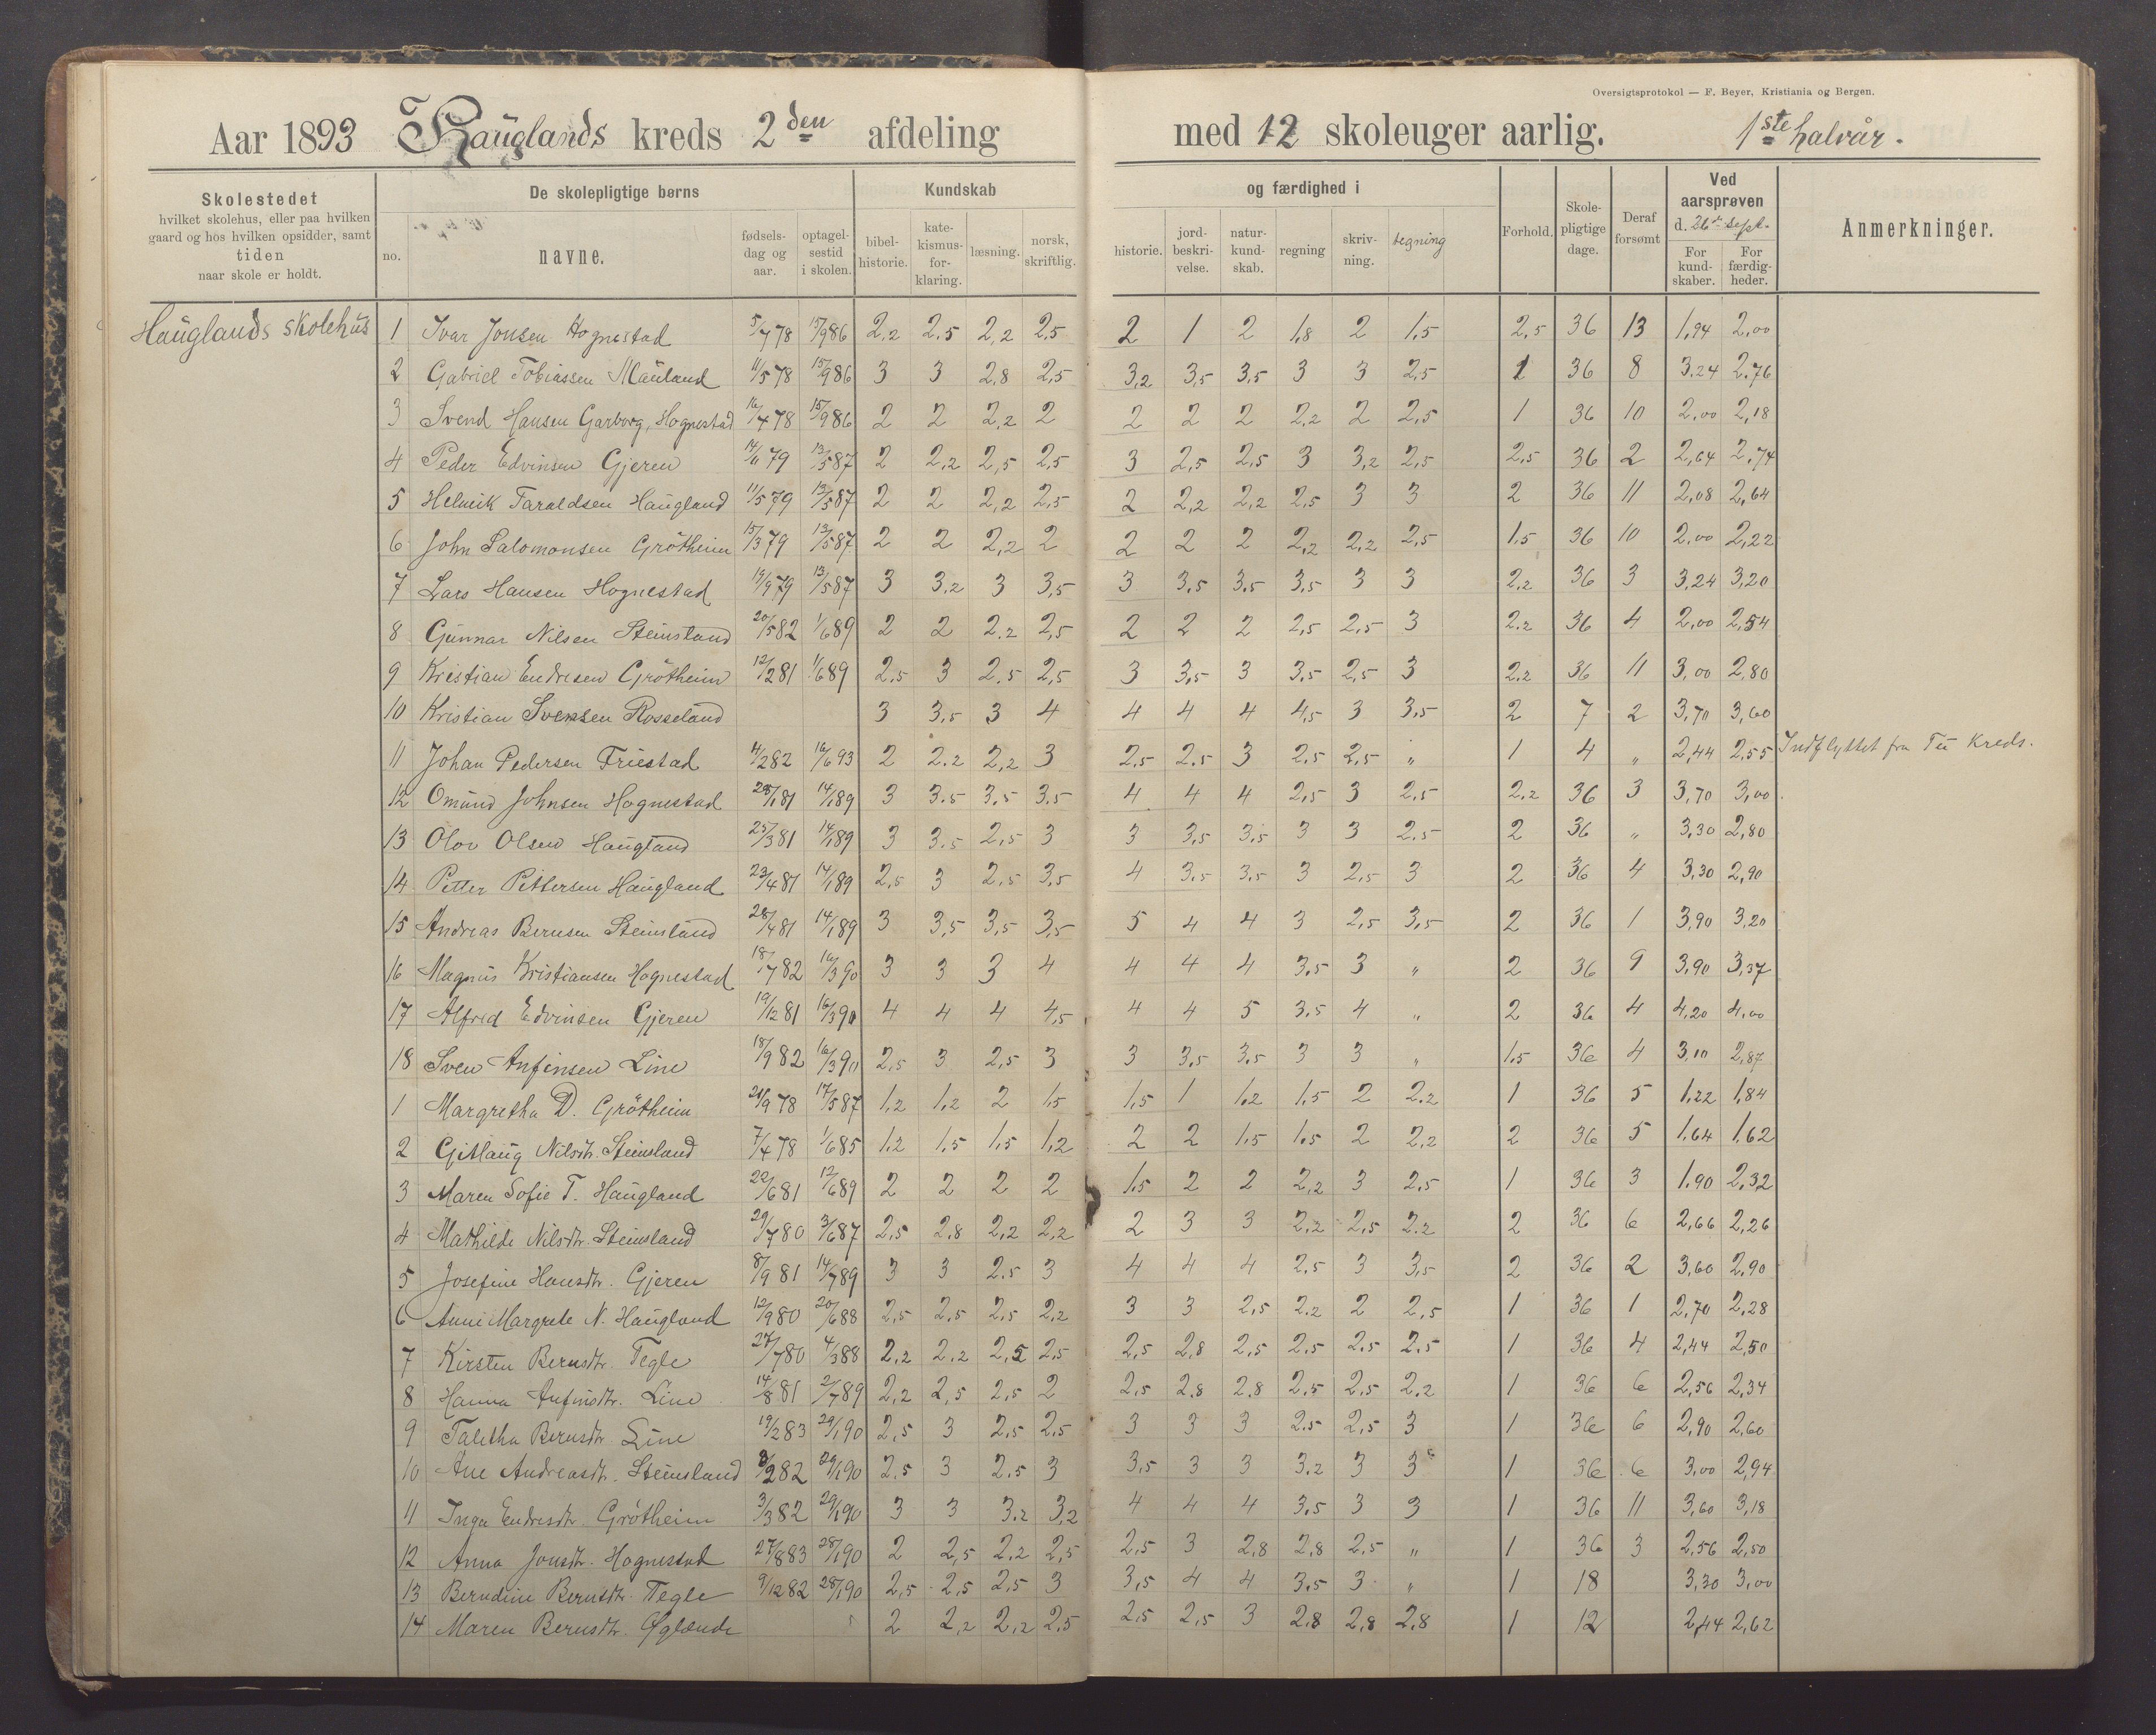 Oversigtsprotokol — F. Beyer, Kristiania og Bergen.
Aar 1893 Haüglands kreds 2den afdeling med 12 skoleuger aarlig. 1ste halvår.
Skolestedet
hvilket skolehus, eller paa hvilken
gaard og hos hvilken opsidder, samt
tiden
naar skole er holdt.
De skolepligtige børns
no.
navne.
fødsels-
dag og
aar.
optagel-
sestid
i skolen.
Kundskab og færdighed i
bibel-
historie.
kate-
kismus-
for-
klaring.
læsning.
norsk,
skriftlig.
historie.
jord-
beskri-
velse.
natur-
kund-
skab.
regning
skriv-
ning.
tegning
Forhold.
Skole-
pligtige
dage.
Deraf
forsømt
Ved
aarsprøven
d. 26de Sept.
For
kund-
skaber.
For
færdig-
heder.
Anmerkninger.
Haüglands skolehüs
1 Ivar Jonsen Hognestad 5/7 78 15/9 86 2,2 2,5 2,2 2,5 2 1 2 1,8 2 1,5 2,5 36 13 1,94 2,00
2 Gabriel Tobiassen Maüland 11/5 78 15/9 86 3 3 2,8 2,5 3,2 3,5 3,5 3 3 2,5 1 36 8 3,24 2,76
3 Svend Hansen Garborg, Hognestad 16/4 78 15/9 86 2 2 2,2 2 2 2 2 2,2 2 2,5 1 36 10 2,00 2,18
4 Peder Edvinsen Gjeren 14/11 79 13/5 87 2 2,2 2,5 2,5 3 2,5 2,5 3 3,2 2,5 2,5 36 2 2,64 2,74
5 Helmik Taraldsen Haügland 11/5 79 13/5 87 2 2 2,2 2,5 2 2,2 2,2 2,5 3 3 2 36 11 2,08 2,64
6 John Salomonsen Grötheim 15/3 79 13/5 87 2 2 2,2 2 2 2 2 2,2 2,2 2,5 1,5 36 10 2,00 2,22
7 Lars Hansen Hognestad 19/9 79 13/5 87 3 3,2 3 3,5 3 3,5 3,5 3,5 3 3 2,2 36 3 3,24 3,20
8 Günnar Nilsen Steinsland 20/5 82 1/6 89 2 2 2,2 2,5 2 2 2 2,5 2,5 3 2,2 36 4 2,00 2,54
9 Kristian Endresen Grötheim 12/2 81 1/6 89 2,5 3 2,5 2,5 3 3,5 3 3,5 2,5 3 2,2 36 11 3,00 2,80
10 Kristian Svensen Rosseland 3 3,5 3 4 4 4 4 4,5 3 3,5 2 7 2 3,70 3,60
11 Johan Pedersen Friestad 4/2 82 16/6 93 2 2,2 2,2 3 2,5 2,5 3 2,5 2,5 „ 1 4 „ 2,44 2,55 Indflyttet fra Tü Kreds.
12 Omünd Johnsen Hognestad 28/1 81 14/1 89 3 3,5 3,5 3,5 4 4 4 2,5 3 2,5 2,2 36 3 3,70 3,00
13 Olov Olsen Haügland 25/3 81 14/1 89 3 3,5 2,5 3 3 3,5 3,5 3 3 2,5 2 36 „ 3,30 2,80
14 Petter Pettersen Haügland 23/4 81 14/1 89 2,5 3 2,5 3,5 4 3,5 3,5 3 2,5 3 2 36 4 3,30 2,90
15 Andreas Bernsen Steinsland 28/4 81 14/1 89 3 3,5 3,5 3,5 5 4 4 3 2,5 3,5 2 36 1 3,90 3,20
16 Magnüs Kristiansen Hognestad 18/7 82 16/3 90 3 3 3 4 4 4 4 3,5 3 „ 2 36 9 3,90 3,37
17 Alfred Edvinsen Gjeren 19/12 81 16/3 90 4 4 4 4,5 4 4 5 3,5 4 „ 2 36 4 4,20 4,00
18 Sven Anfinsen Line 18/9 82 16/3 90 2,5 3 2,5 3 3 3,5 3,5 3 3 „ 1,5 36 4 3,10 2,87
1 Margretha D. Grötheim 28/9 78 17/5 87 1,2 1,2 2 1,5 1,5 1 1,2 1,5 2 2,2 1 36 5 1,22 1,84
2 Gitlaüg Nilsdtr. Steinsland 7/4 78 1/6 85 1,2 1,5 1,5 1,2 2 2 1,5 1,5 2 2,2 2 36 5 1,64 1,62
3 Maren Sofie T. Haügland 22/6 81 12/6 89 2 2 2 2 1,5 2 2 2,2 3 2,5 1 36 3 1,90 2,32
4 Mathilde Nilsdtr. Steinsland 29/7 80 3/6 87 2,5 2,8 2,2 2,2 2 3 3 2,2 2,5 2,2 2 36 6 2,66 2,26
5 Josefine Hansdtr. Gjeren 8/9 81 14/7 89 3 3 2,5 3 4 4 4 2,5 3 3,5 2 36 2 3,60 2,90
6 Anne Margrete N. Haügland 12/9 80 20/6 88 2,5 2,5 2,5 2,2 3 3 2,5 2,2 2 2,5 1 36 1 2,70 2,28
7 Kirsten Bernsdtr. Tegle 27/7 80 4/3 88 2,2 2,2 2,5 2,5 2,5 2,8 2,5 2,5 2,5 2,5 1 36 4 2,44 2,50
8 Hanna Anfinsdtr. Line 14/8 81 2/7 89 2,2 2,5 2,5 2 2,5 2,8 2,8 2,5 2,5 2,2 1 36 6 2,56 2,34
9 Talitha Bernsdtr. Line 19/2 83 29/1 90 2,5 3 2,5 2,5 3 3 3 2,5 2,5 3 1 36 6 2,90 2,60
10 Ane Andreasdtr. Steinsland 8/2 82 29/1 90 2,5 3 2,5 3 3,5 3 3 3,2 3 3 1 36 6 3,00 2,94
11 Inga Endresdtr. Grötheim 3/3 82 29/1 90 3 3 3,2 3,2 4 4 4 3,5 3 3 1 36 11 3,60 3,18
12 Anna Jonsdtr. Hognestad 27/8 83 28/1 90 2 2,5 2,2 2,5 2,5 3 2,8 2,8 2,5 „ 1 36 3 2,56 2,50
13 Berndine Bernsdtr. Tegle 9/12 82 28/1 90 2,5 2,5 2,5 3 3,5 4 4 3,5 3 „ 1 18 3,30 3,00
14 Maren Bernsdtr. Øglænde 2 2,2 2,2 2,5 2,5 2,5 3 2,8 2,8 2,8 1 12 2,44 2,62